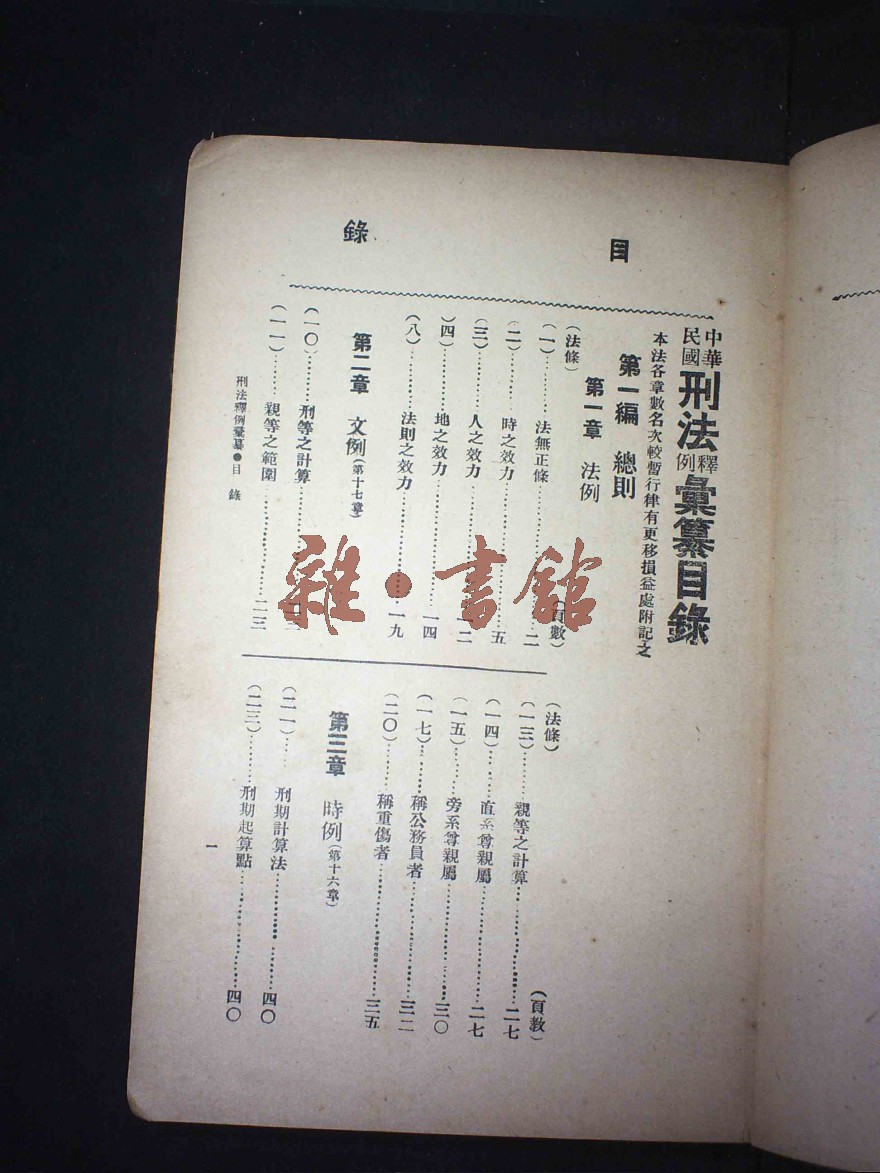 目錄
中華民國刑法釋例彙纂目錄
本法各章數名次較暫行律有更移損益處附記之
第一編 總則
第一章 法例
(法條) (頁數)
(一)………法無正條………二
(二)………時之效力………五
(三)………人之效力………一二
(四)………地之效力………一四
(八)………法則之效力………一九
第二章 文例(第十七章)
(一〇)………刑等之計算………
(一一)………親等之範圍………二三
(法條) (頁數)
(一三)………親等之計算………二七
(一四)………直系尊親屬………二七
(一五)………旁系尊親屬………三〇
(一七)………稱公務員者………三二
(二〇)………稱重傷者………三五
第三章 時例(第十六章)
(二一)………刑期計算法………四〇
(二三)………刑期起算點………四〇
刑法釋例彙纂●目錄
一
雜·書館